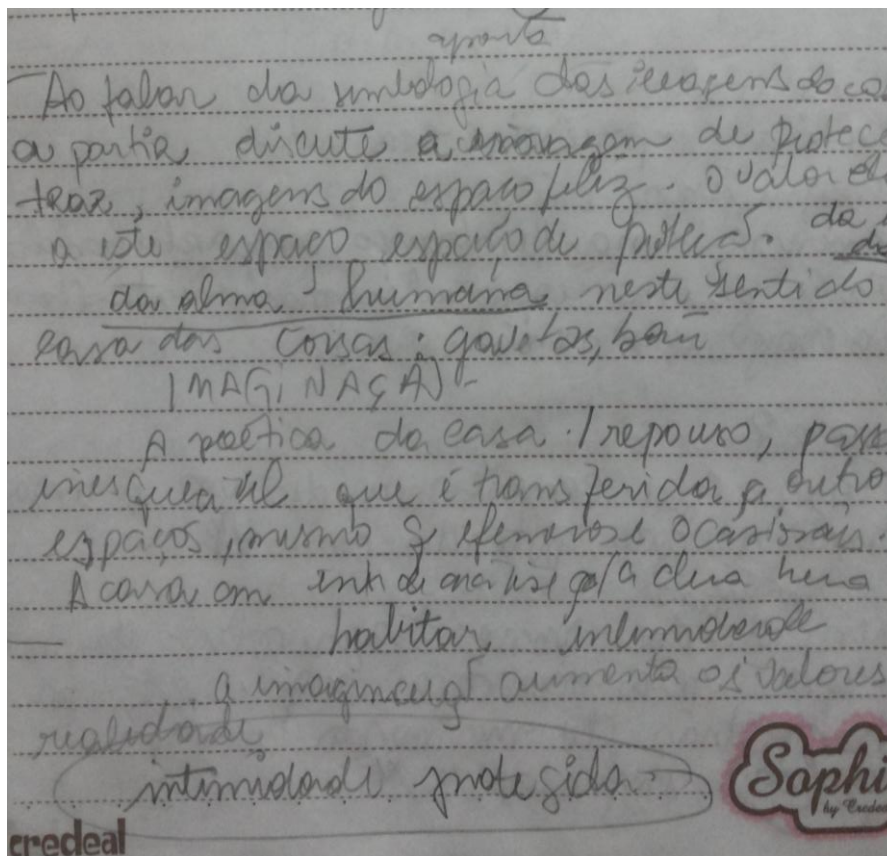 aponta
Ao falar da simbologia das imagens da ca
a partir discute a de protec
traz, imagens do espaço feliz. O valor
a este espaço espaço de proteçã. da
da alma humana neste sentido
casa das coisas: gavetas, baú
IMAGINAÇÃO -
A poética da casa / repouso, pass
inesquecível que é transferida a outro
espaços, mesmo q efemeros e ocasionais.
A casa um de analise p/a alma huma
habitar intimidade
a imaginaçã aumenta os valores
realidade
intimidade protegida
Sophi
by Crede
credeal